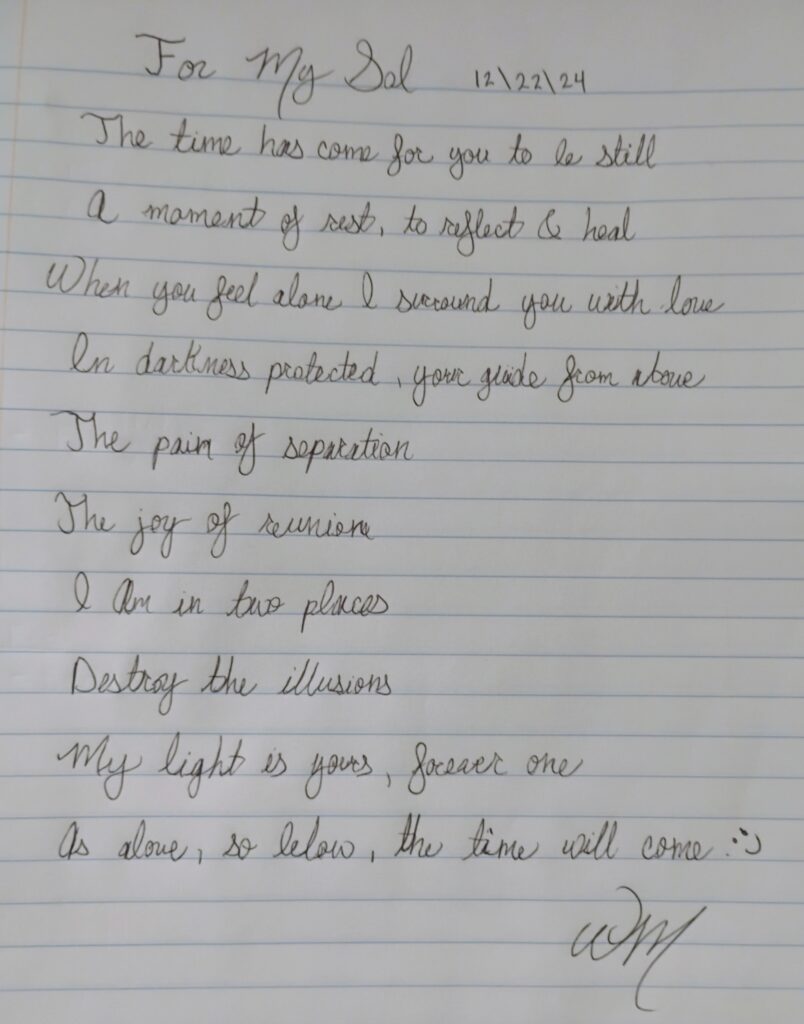 For My Sol 12\22\24
The time has come for you to be still
A moment of rest, to reflect & heal
When you feel alone I surround you with love
In darkness protected, your guide from above
The pain of separation
The joy of reunion
I am in two places
Destroy the illusions
My light is yours, forever one
As above, so below, the time will come :)
WM